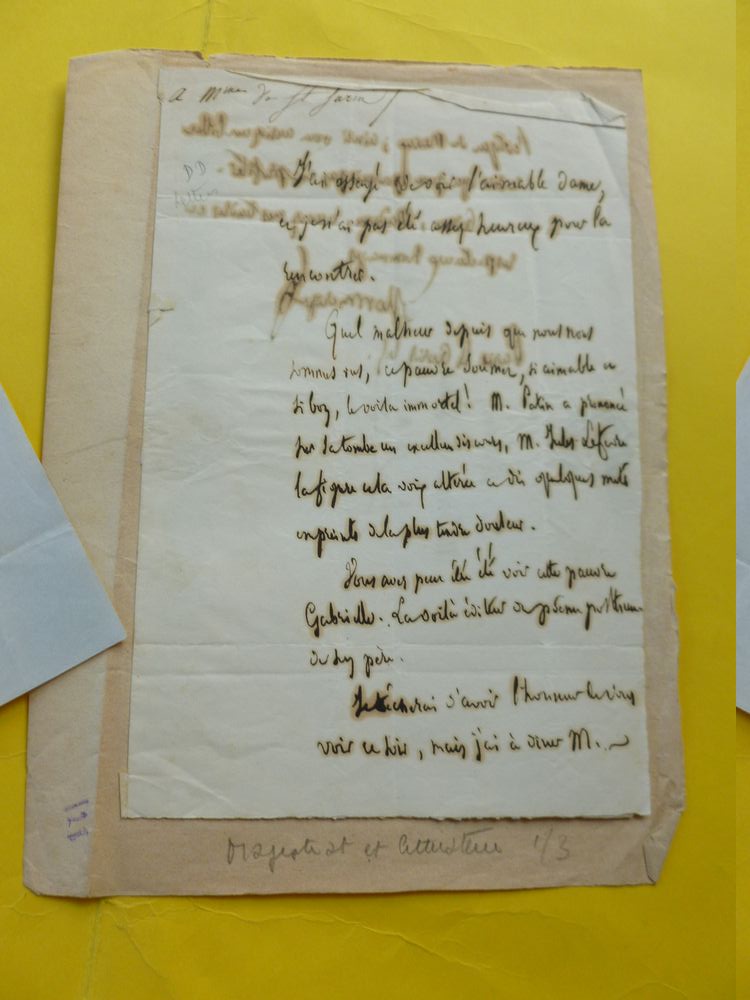 a Mme de St
DD
lettres
J'ai essayé de voir l'aimable dame,
et je n'ai pas été assez heureux pour la
rencontrer.
Quel malheur depuis que nous nous
sommes vus, ce pauvre Soumet, si aimable et
si bon, le voilà immortel! M. Patin a prononcé
sur sa tombe un excellent discours, M. Jules Lefèvre
la figure et la voix altérée a dit quelques mots
empreints de la plus tendre douleur.
Vous avez peut être été voir cette pauvre
Gabrielle. La voilà éditeur du poème posthume
de son père.
Je tâcherai d'avoir l'honneur de vous
voir ce soir, mais j'ai à dîner M.
Magistrat et littérateur 1/3